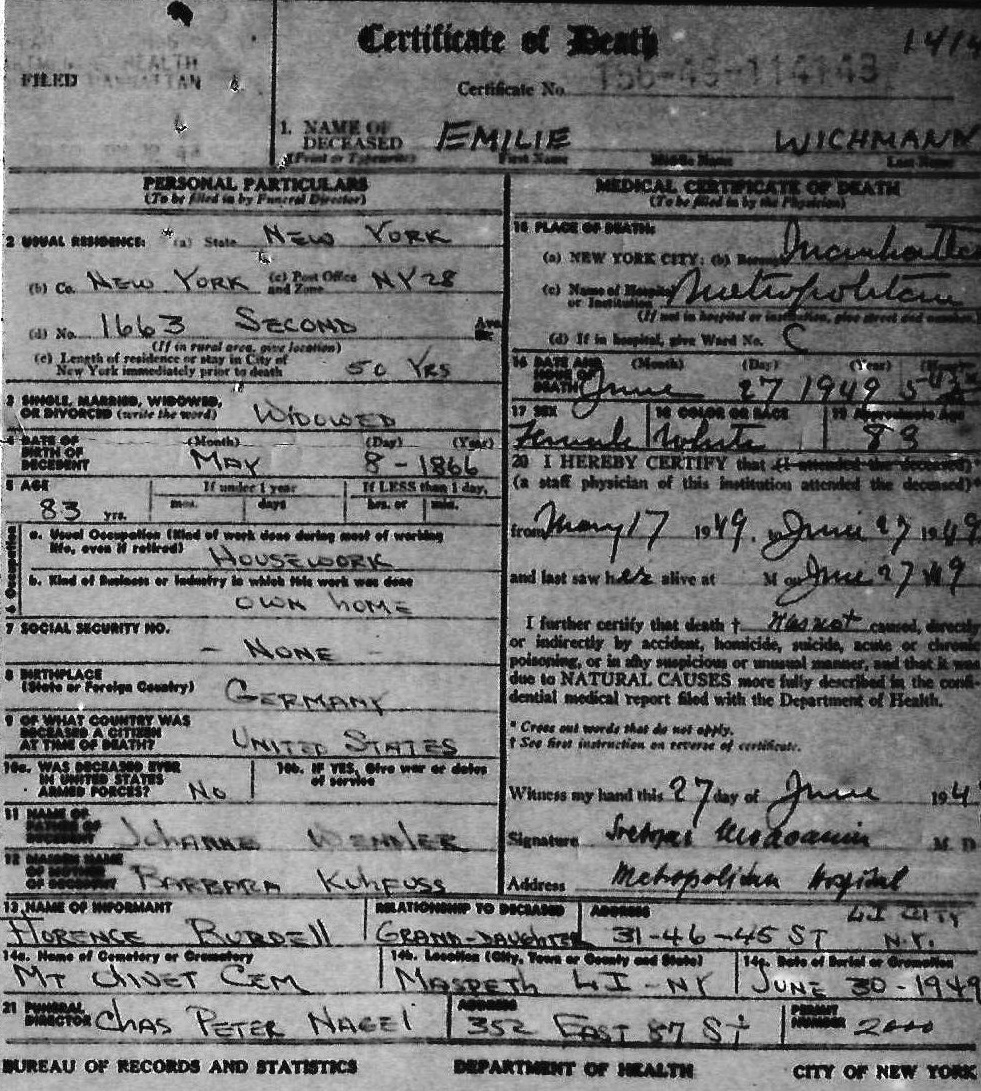 Certificate of Death
1414
HEALTH
FILED
Certificate No. 156-49-114143
1. NAME OF DECEASED EMILIE WICHMANN
(Print or Typewrite) First Name Middle Name Last Name
PERSONAL PARTICULARS
(To be filed in by Funeral Director)
2 USUAL RESIDENCE: (a) State NEW YORK
(b) Co. NEW YORK (c) Post Office and Zone NY 28
(d) No. 1663 SECOND Ave.
(If in rural area, give location)
(e) Length of residence or stay in City of
New York immediately prior to death 50 YRS
3 SINGLE, MARRIED, WIDOWED,
OR DIVORCED (write the word) WIDOWED
4 DATE OF BIRTH OF DECEDENT (Month) (Day) (Year)
MAY 8 - 1866
5 AGE If under 1 year If LESS than 1 day,
83 yrs. mos. days hrs. or min.
6 Occupation
a. Usual Occupation (Kind of work done during most of working
life, even if retired) HOUSEWORK
b. Kind of Business or Industry in which this work was done
OWN HOME
7 SOCIAL SECURITY NO.
- NONE -
8 BIRTHPLACE
(State or Foreign Country) GERMANY
9 OF WHAT COUNTRY WAS
DECEASED A CITIZEN
AT TIME OF DEATH? UNITED STATES
10a. WAS DECEASED EVER
IN UNITED STATES
ARMED FORCES? NO
10b. IF YES, Give war or dates
of service
11 NAME OF
FATHER OF
DECEDENT JOHANNE WENNLER
12 MAIDEN NAME
OF MOTHER
OF DECEDENT BARBARA KUHFUSS
MEDICAL CERTIFICATE OF DEATH
(To be filed in by the Physician)
15 PLACE OF DEATH:
(a) NEW YORK CITY: (b) Borough Manhattan
(c) Name of Hospital
or Institution Metropolitan
(If not in hospital or institution, give street and number.)
(d) If in hospital, give Ward No. C
16 DATE AND
HOUR OF
DEATH (Month) (Day) (Year)
June 27 1949
17 SEX 18 COLOR OR RACE 19 Approximate Age
Female White 83
20 I HEREBY CERTIFY that (I attended the deceased)*
(a staff physician of this institution attended the deceased)*
from May 17 1949, to June 27 1949
and last saw her alive at M on June 27 1949
I further certify that death † was not caused, directly
or indirectly by accident, homicide, suicide, acute or chronic
poisoning, or in any suspicious or unusual manner, and that it was
due to NATURAL CAUSES more fully described in the confi-
dential medical report filed with the Department of Health.
* Cross out words that do not apply.
† See first instruction on reverse of certificate.
Witness my hand this 27 day of June 194
Signature M. D.
Address Metropolitan Hospital
13 NAME OF INFORMANT RELATIONSHIP TO DECEASED ADDRESS LI CITY
FLORENCE BURDELL GRAND-DAUGHTER 31-46-45 ST N.Y.
14a. Name of Cemetery or Crematory 14b. Location (City, Town or County and State) 14c. Date of Burial or Cremation
MT OLIVET CEM MASPETH LI - NY JUNE 30-1949
21 FUNERAL DIRECTOR ADDRESS PERMIT NUMBER
CHAS PETER NAGEL 352 EAST 87 ST 2000
BUREAU OF RECORDS AND STATISTICS DEPARTMENT OF HEALTH CITY OF NEW YORK